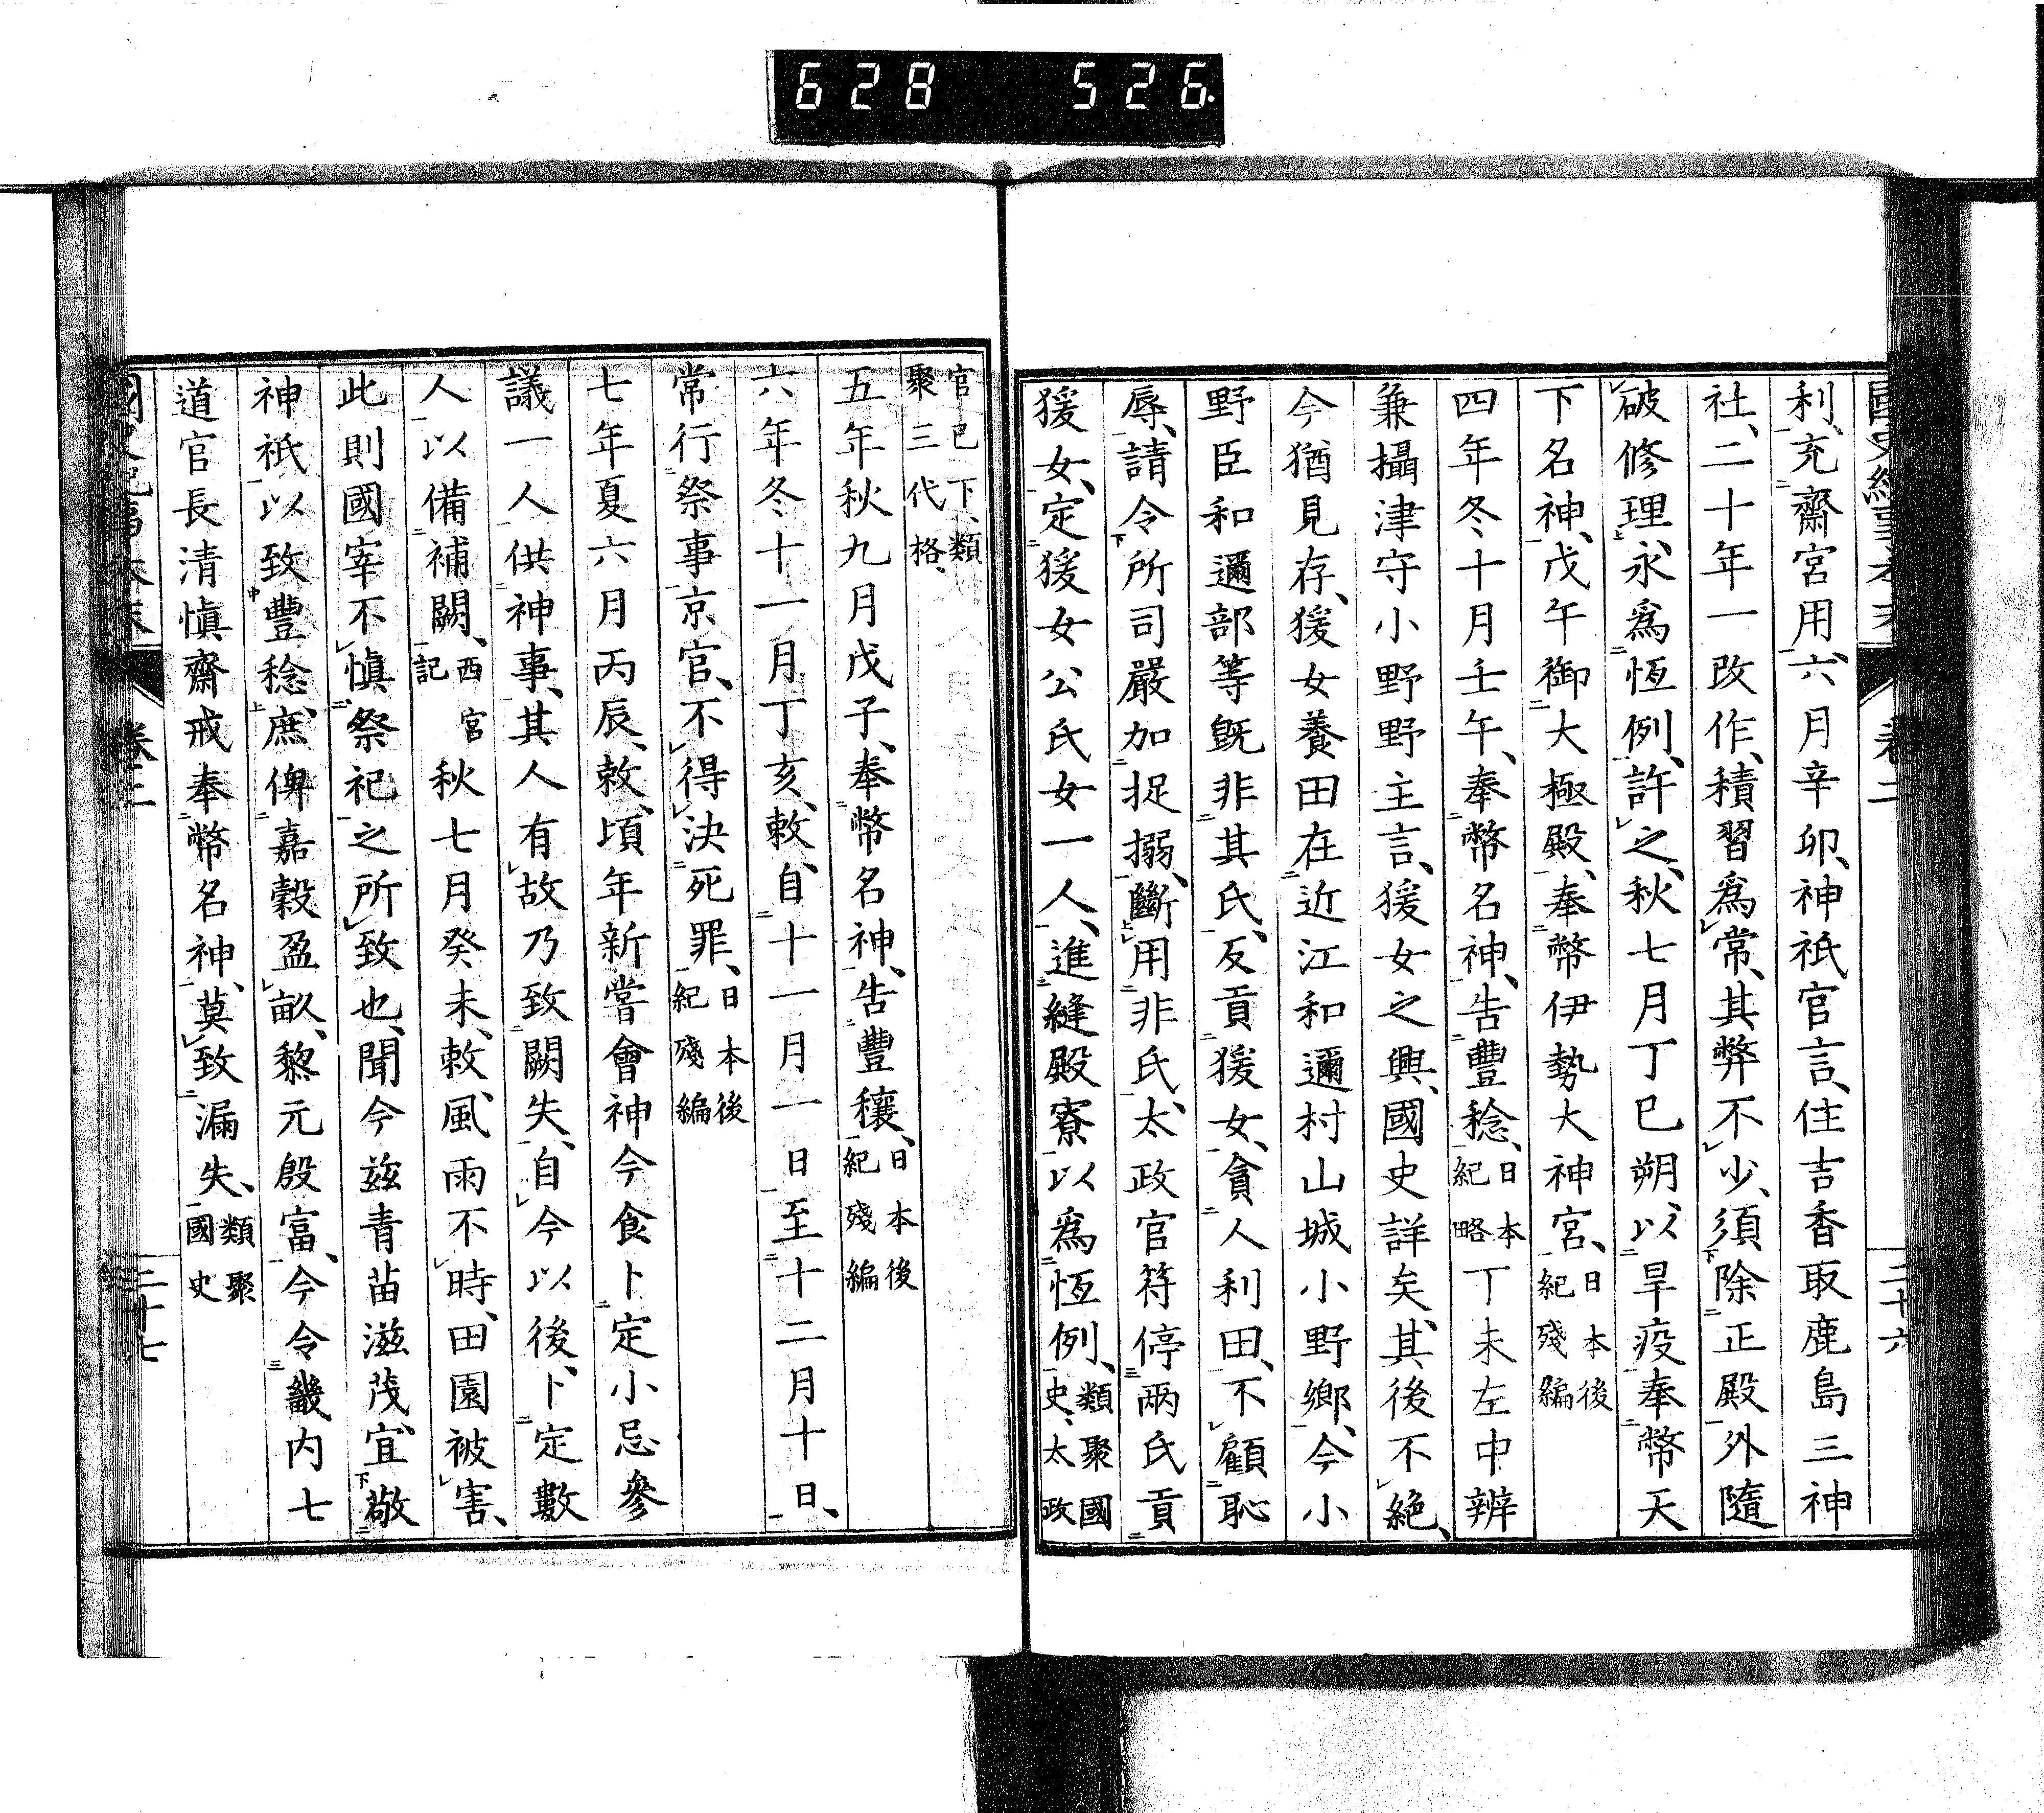 628 526.
國史紀事本末 卷二 二十六
利、充齋宮用、六月辛卯、神祇官言、住吉香取鹿島三神
社、二十年一改作、積習爲常、其弊不少、須除正殿外隨
破修理、永爲恆例、許之、秋七月丁巳朔、以旱疫奉幣天
下名神、戊午御大極殿、奉幣伊勢大神宮、日本後紀殘編
四年冬十月壬午、奉幣名神、告豐稔、日本紀略丁未左中辨
兼攝津守小野野主言、猨女之興、國史詳矣、其後不絶、
今猶見存、猨女養田在近江和邇村山城小野鄉、今小
野臣和邇部等旣非其氏、反貢猨女、貪人利田、不顧恥
辱、請令所司嚴加捉搦、斷用非氏、太政官符停兩氏貢
猨女、定猨女公氏女一人、進縫殿寮以爲恆例、類聚國史、太政
官已下、類聚三代格、
五年秋九月戊子、奉幣名神、告豐穰、日本後紀殘編
六年冬十一月丁亥、敕、自十一月一日至十二月十日、
常行祭事京官、不得決死罪、日本後紀殘編
七年夏六月丙辰、敕、頃年新嘗會神今食卜定小忌參
議一人供神事、其人有故乃致闕失、自今以後、卜定數
人以備補闕、西宮記秋七月癸未、敕、風雨不時、田園被害、
此則國宰不愼祭祀之所致也、聞今茲青苗滋茂、宜敬
神祇以致豐稔、庶俾嘉穀盈畝、黎元殷富、今令畿内七
道官長清愼齋戒奉幣名神、莫致漏失、類聚國史
國史紀事本末 卷二 二十七